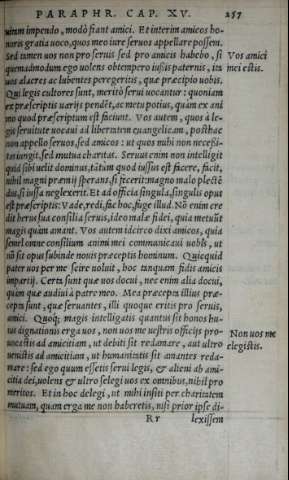 PARAPHR. CAP. XV. 257
uitam impendo, modò fiant amici. Et interim amicos ho-
noris gratia uoco, quos meo iure seruos appellare possem.
Sed tamen uos non pro seruis sed pro amicis habebo, si
Vos amici
quemadmodum ego uolens obtempero iussis paternis, ita
mei estis.
uos alacres ac lubentes peregeritis, quæ præcipio uobis.
Qui legis cultores sunt, meritò serui uocantur: quoniam
ex præscriptis uarijs pendēt, ac metu potius, quàm ex ani
mo quod præscriptum est faciunt. Vos autem, quos à le-
gis seruitute uocaui ad libertatem euangelicam, posthac
non appello seruos, sed amicos: ut quos mihi non necessi-
tas iungit, sed mutua charitas. Seruus enim non intelligit
quid sibi uelit dominus, tātùm quod iussus est facere, facit,
nihil magni præmij sperans, si fecerit: magno malo plectē
dus, si iussa neglexerit. Et ad officia singula, singulis opus
est præscriptis: Vade, redi, fac hoc, fuge illud. Nō enim cre
dit herus sua consilia seruis, ideo malæ fidei, quia metuūt
magis quàm amant. Vos autem idcirco dixi amicos, quia
semel omne consilium animi mei communicaui uobis, ut
nō sit opus subinde nouis præceptis hominum. Quicquid
pater uos per me scire uoluit, hoc tanquam fidis amicis
impartij. Certa sunt quæ uos docui, nec enim alia docui,
quàm quæ audiui à patre meo. Mea præcepta illius præ-
cepta sunt, quæ seruantes, illi quoque eritis pro seruis,
amici. Quoq; magis intelligatis quantus sit honos hu-
ius dignationis erga uos, non uos me uestris officijs pro-
uocastis ad amicitiam, ut debiti sit redamare, aut ultro
Non uos me
uenistis ad amicitiam, ut humanitatis sit amantes reda-
elegistis.
mare: sed ego quum essetis serui legis, & alieni ab ami-
citia dei, uolens & ultro selegi uos ex omnibus, nihil pro
meritos. Et in hoc delegi, ut mihi insiti per charitatem
mutuam, quam erga me non haberetis, nisi prior ipse di-
Rr lexissem